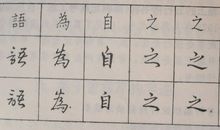 語為自之之
語為自之之
語為自之之